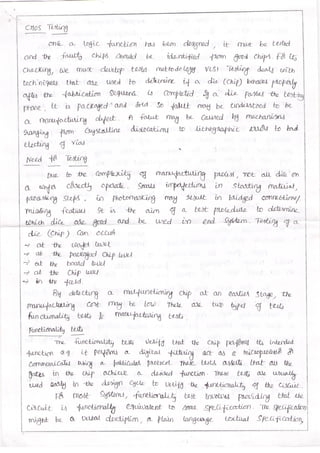 CMOS Testing
Once a logic function has been designed, it must be tested
and the faulty chips should be identified from good chips. For
Checking, we must develop tests methodology. VLSI Testing deals with
techniques that are used to determine if a die (chip) behaves properly
after the fabrication Sequence is Completed. If a die passes the testing
phase, it is packaged and sold. So fault may be understood to be
a manufacturing defect. A fault may be Caused by mechanisms
ranging from Crystalline dislocations to lithographic errors to bad
etching of vias
Need for Testing
Due to the Complexity of manufacturing process, not all die on
a wafer correctly operate. Small imperfections in starting material,
processing steps, in photomasking may result in bridged connections/
missing features. It is the aim of a test procedure to determine
which dice are good and be used in end System. Testing of a
die (chip) can occur
→ at the wafer level
→ at the packaged Chip level
→ at the board level
→ at the Chip level
→ in the field
By detecting a malfunctioning chip at an earlier stage, the
manufacturing Cost may be low. There are two types of tests
functionality tests & manufacturing tests.
Functionality tests
The functionality tests verify that the chip performs its intended
function e.g. it performs a digital filtering act as a microprocessor or
communicates using a particular protocol. These tests asserts that all the
gates in the chip achieve a desired function. These tests are usually
used early in the design cycle to verify the functionality of the circuit.
For most systems, functionality test involves providing that the
Circuit is functionally equivalent to some specification. The specification
might be a verbal description, a plain language textual specification,